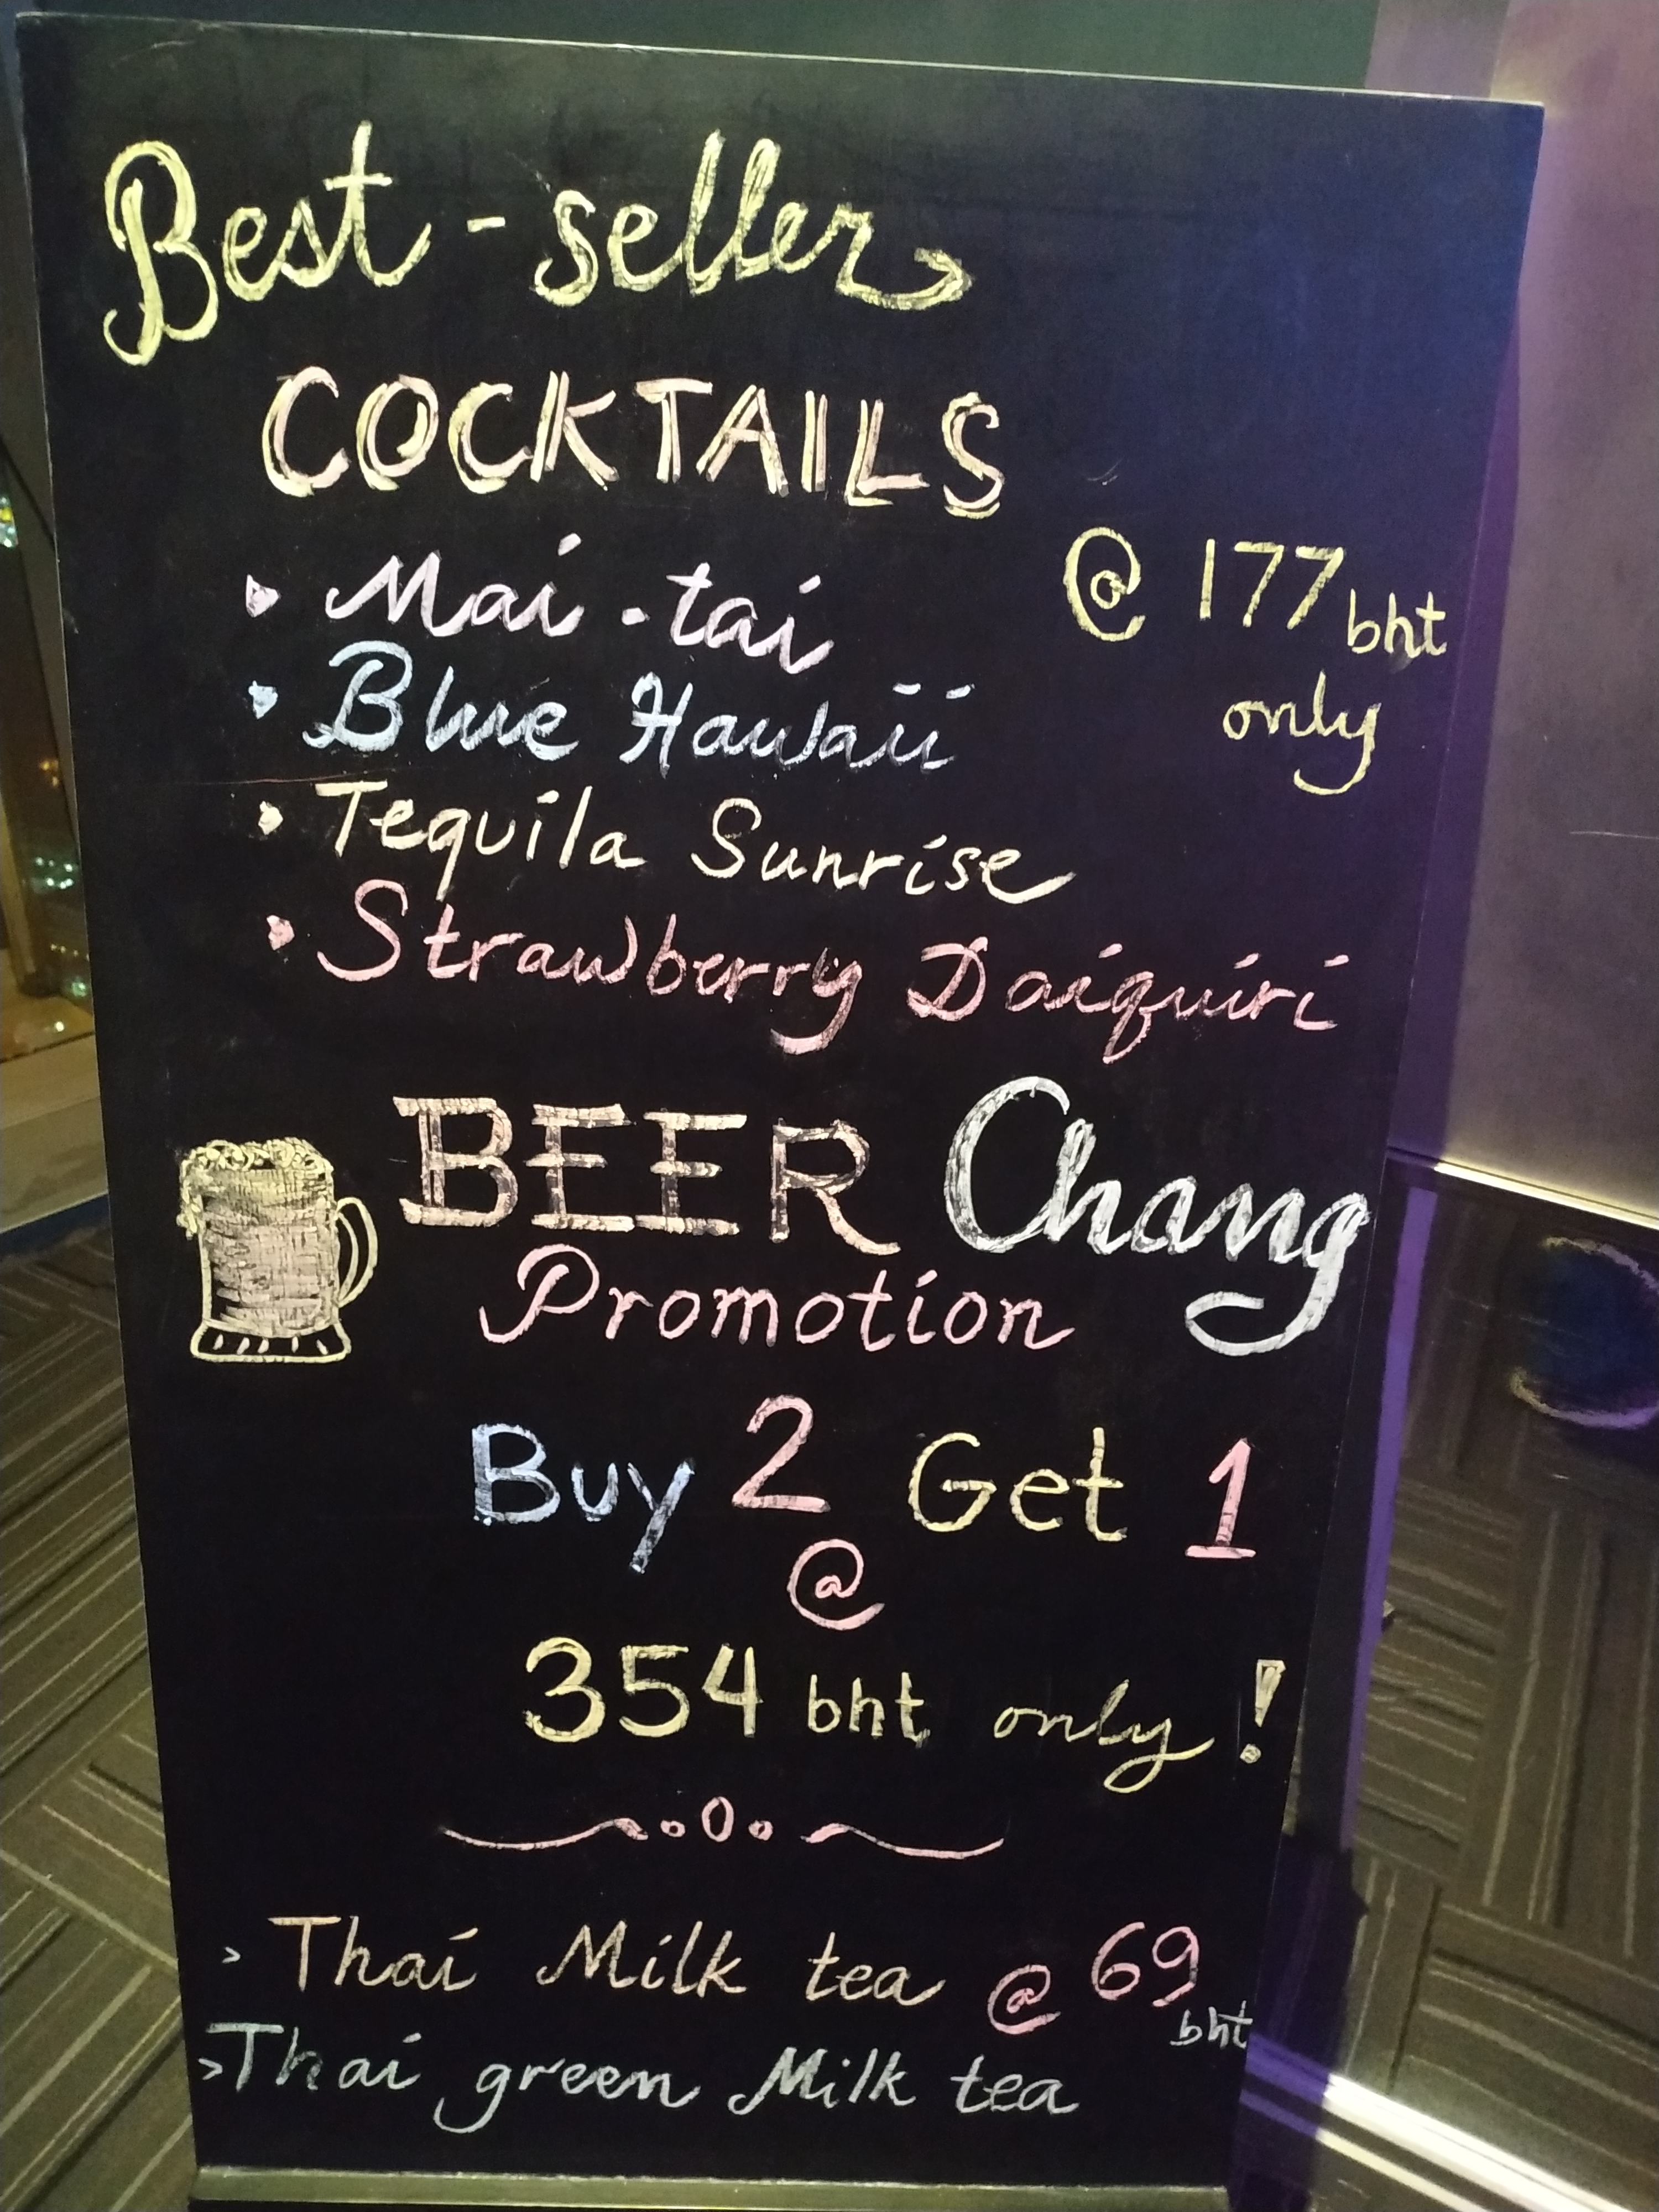 Best-seller
COCKTAILS
Mai-tai
@ 177 bht
only
Blue Hawaii
Tequila Sunrise
Strawberry Daiquiri
BEER Chang
Promotion
Buy 2 Get 1
@
354 bht only!
> Thai Milk tea @ 69
bht
> Thai green Milk tea